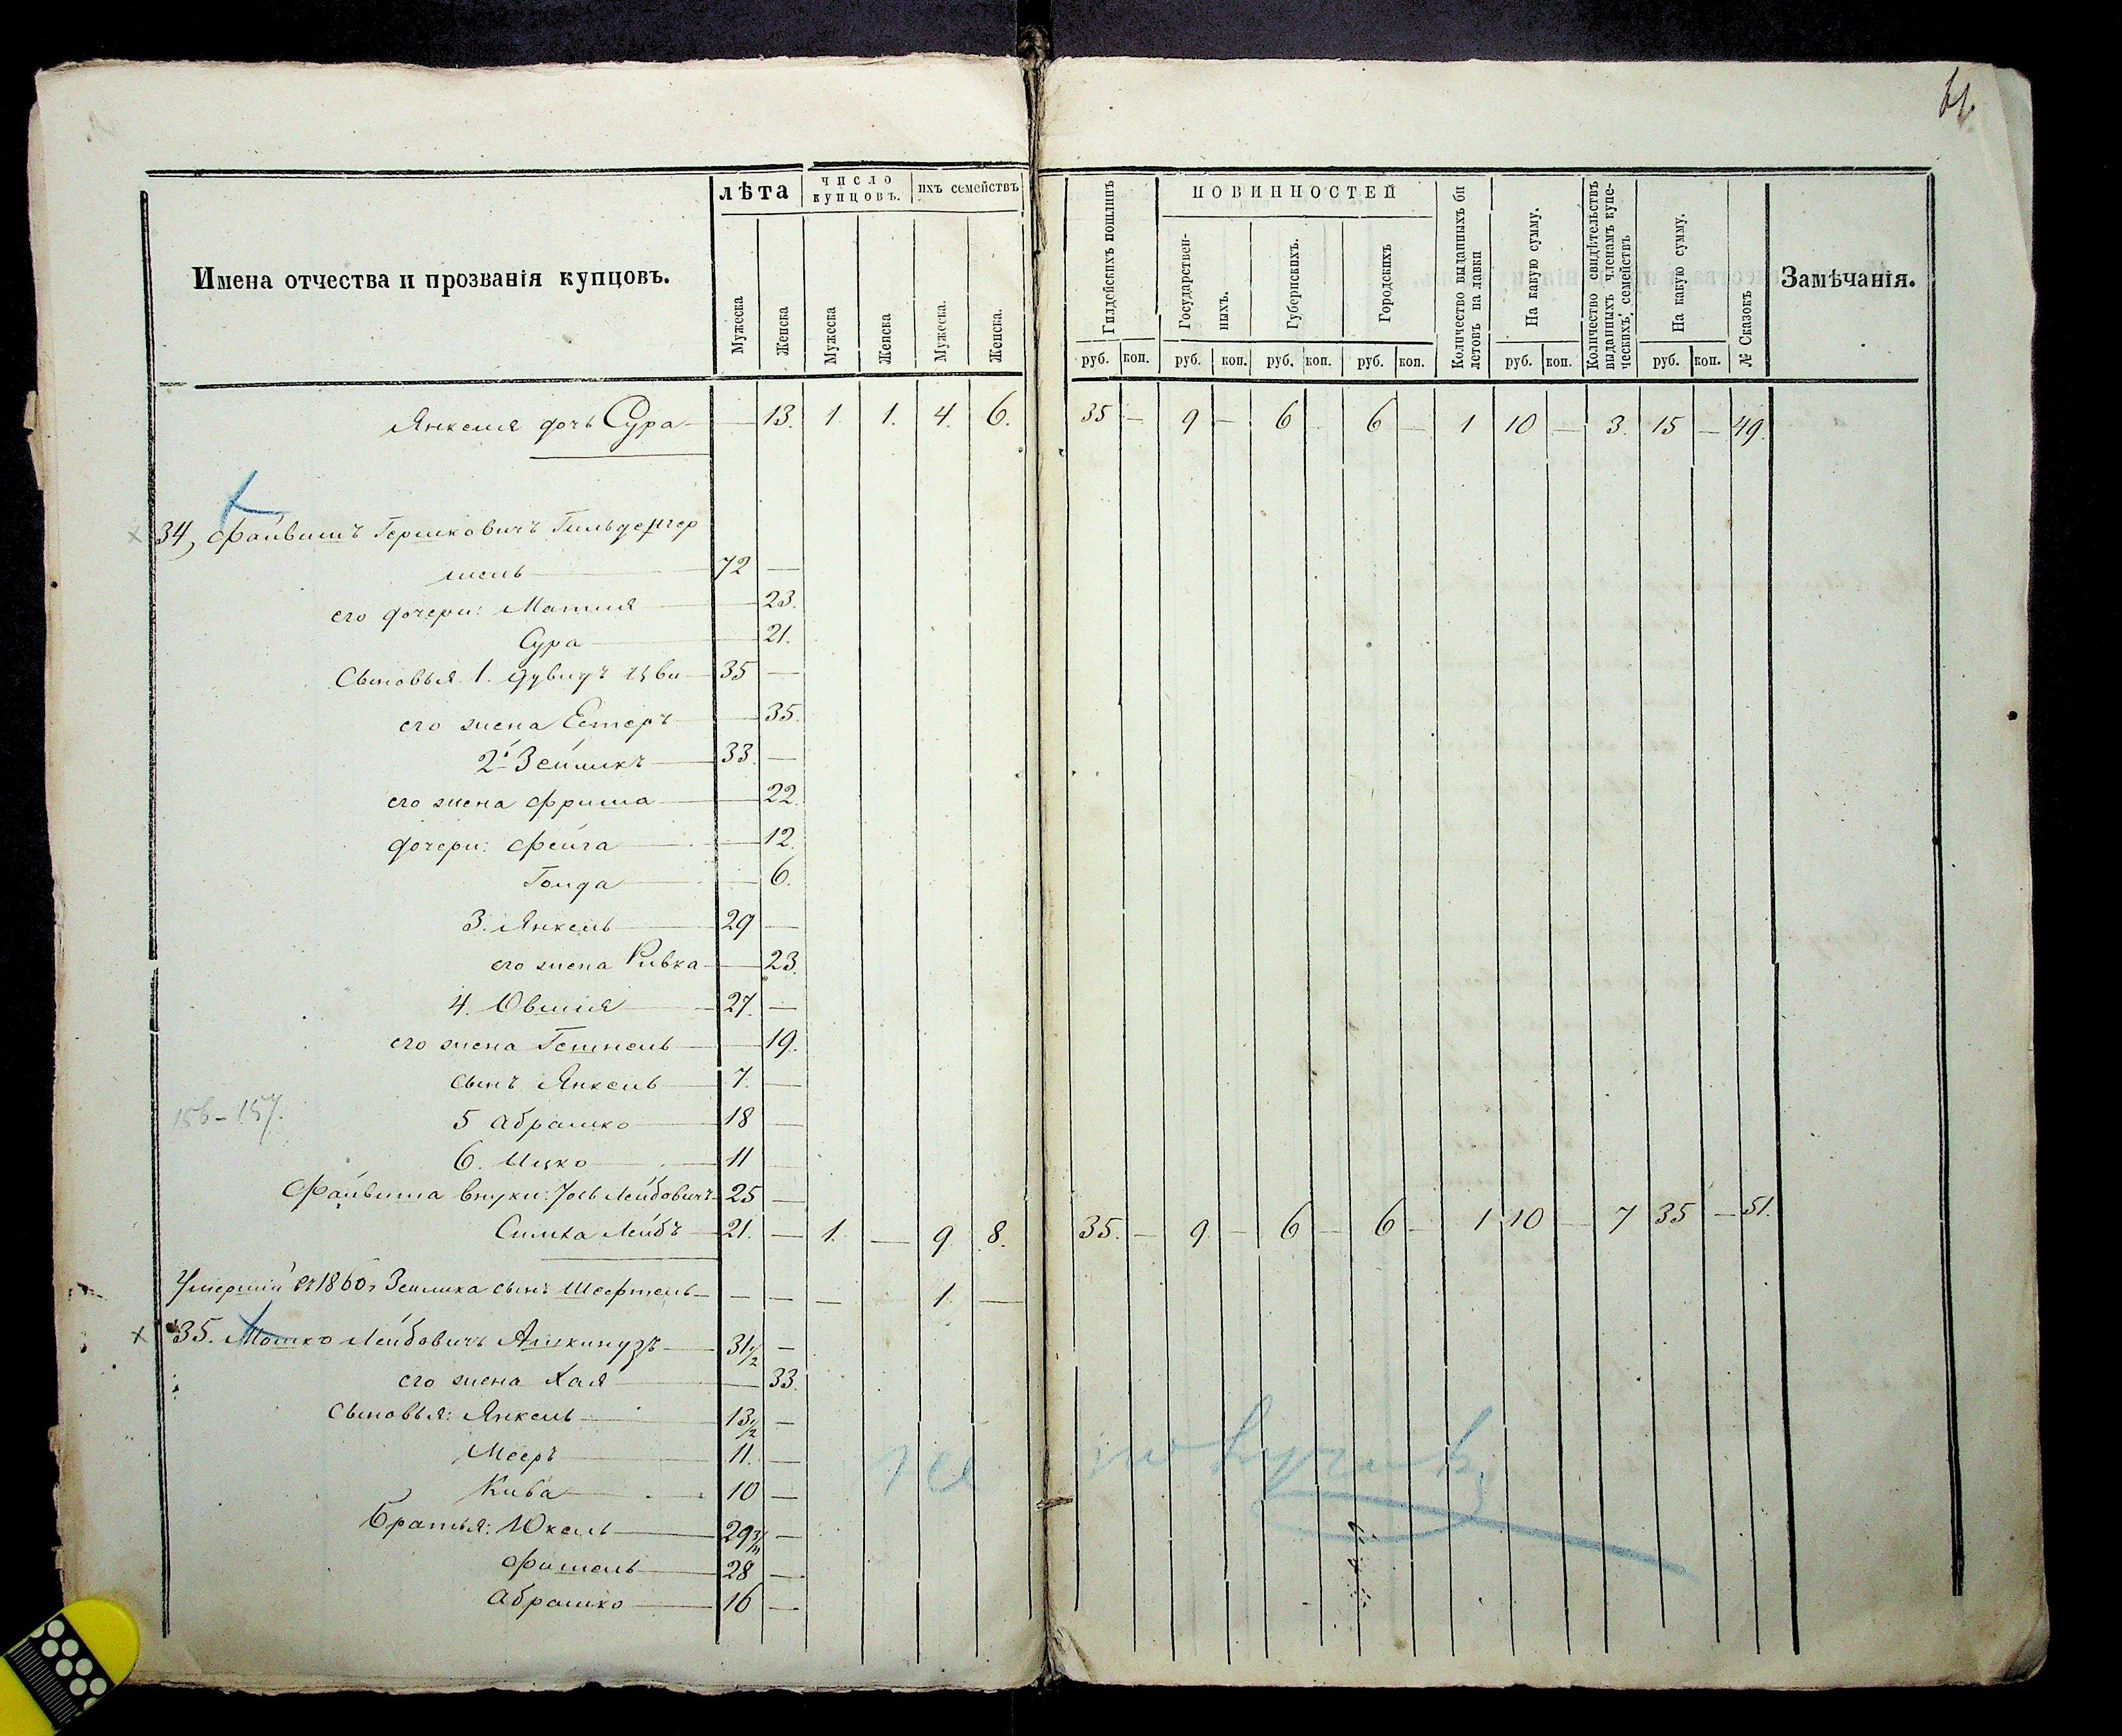 61.
Имена отчества и прозванія купцовъ.
лѣта
число купцовъ.
ихъ семействъ
Мужеска
Женска
Мужеска
Женска
Мужеска.
Женска.
Гильдейскихъ пошлинъ
ПОВИННОСТЕЙ
Государствен-
ныхъ.
Губернскихъ.
Городскихъ
Количество выданныхъ би
летовъ на лавки
На какую сумму.
Количество свидѣтельствъ
выданныхъ членамъ купе-
ческихъ семействъ
На какую сумму.
№ Сказокъ
Замѣчанія.
руб. коп. руб. коп. руб. коп. руб. коп. руб. коп. руб. коп.
Янкеля дочь Сура — 13. 1 1. 4. 6. 35 — 9 — 6 6 — 1 10 — 3. 15 — 49.
34, Файвишъ Гершковичъ
72 —
его дочери: Матля — 23.
Сура — 21.
Сыновья 1. Дувидъ Цви 35 —
его жена Естеръ — 35.
2й Зейликъ 33 —
его жена Фрима — 22.
дочери: Фейга — 12.
Голда — 6.
3. Янкель 29 —
его жена Ривка — 23.
4. Овшия 27. —
его жена — 19.
сынъ Янкель 7. —
156-157.
5 Абрашко 18 —
6. Ицко 11
Файвиша внуки: Лейбовичъ 25 —
Симха Лейбъ 21. — 1. — 9. 8. 35. — 9 — 6 — 6 — 1 10 — 7 35 — 51.
Умершій въ 1860 г Зейлика сынъ Шефтель — — — 1. —
35. Мошко Лейбовичъ Ашкинудзъ 31 1/2 —
его жена Хая — 33.
Сыновья: Янкель 13 1/2 —
Мееръ 11. —
Кива 10 —
Братья: Юкель —
Фишель 28 —
Абрашко 16 —